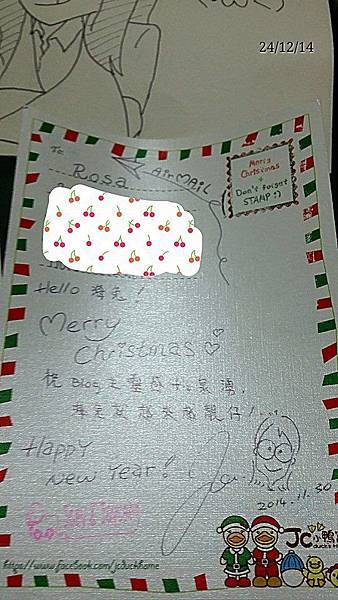 24/12/14
To:
Rosa
AirMAIL
Merry
Christmas
+
Don't forget
STAMP :)
Hello 莓兔！
Merry
Christmas
祝 Blog 文靈感 如泉湧，
HAPPY
New YEAR!
2014.11.30
JC小鴨
https://www.facebook.com/jcduckhome